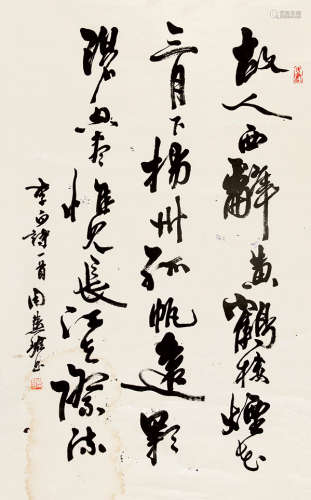 故人西辭黄鶴楼煙花
三月下揚州孤帆遠影
碧空尽惟见長江天際流
李白詩一首 周慧珺书